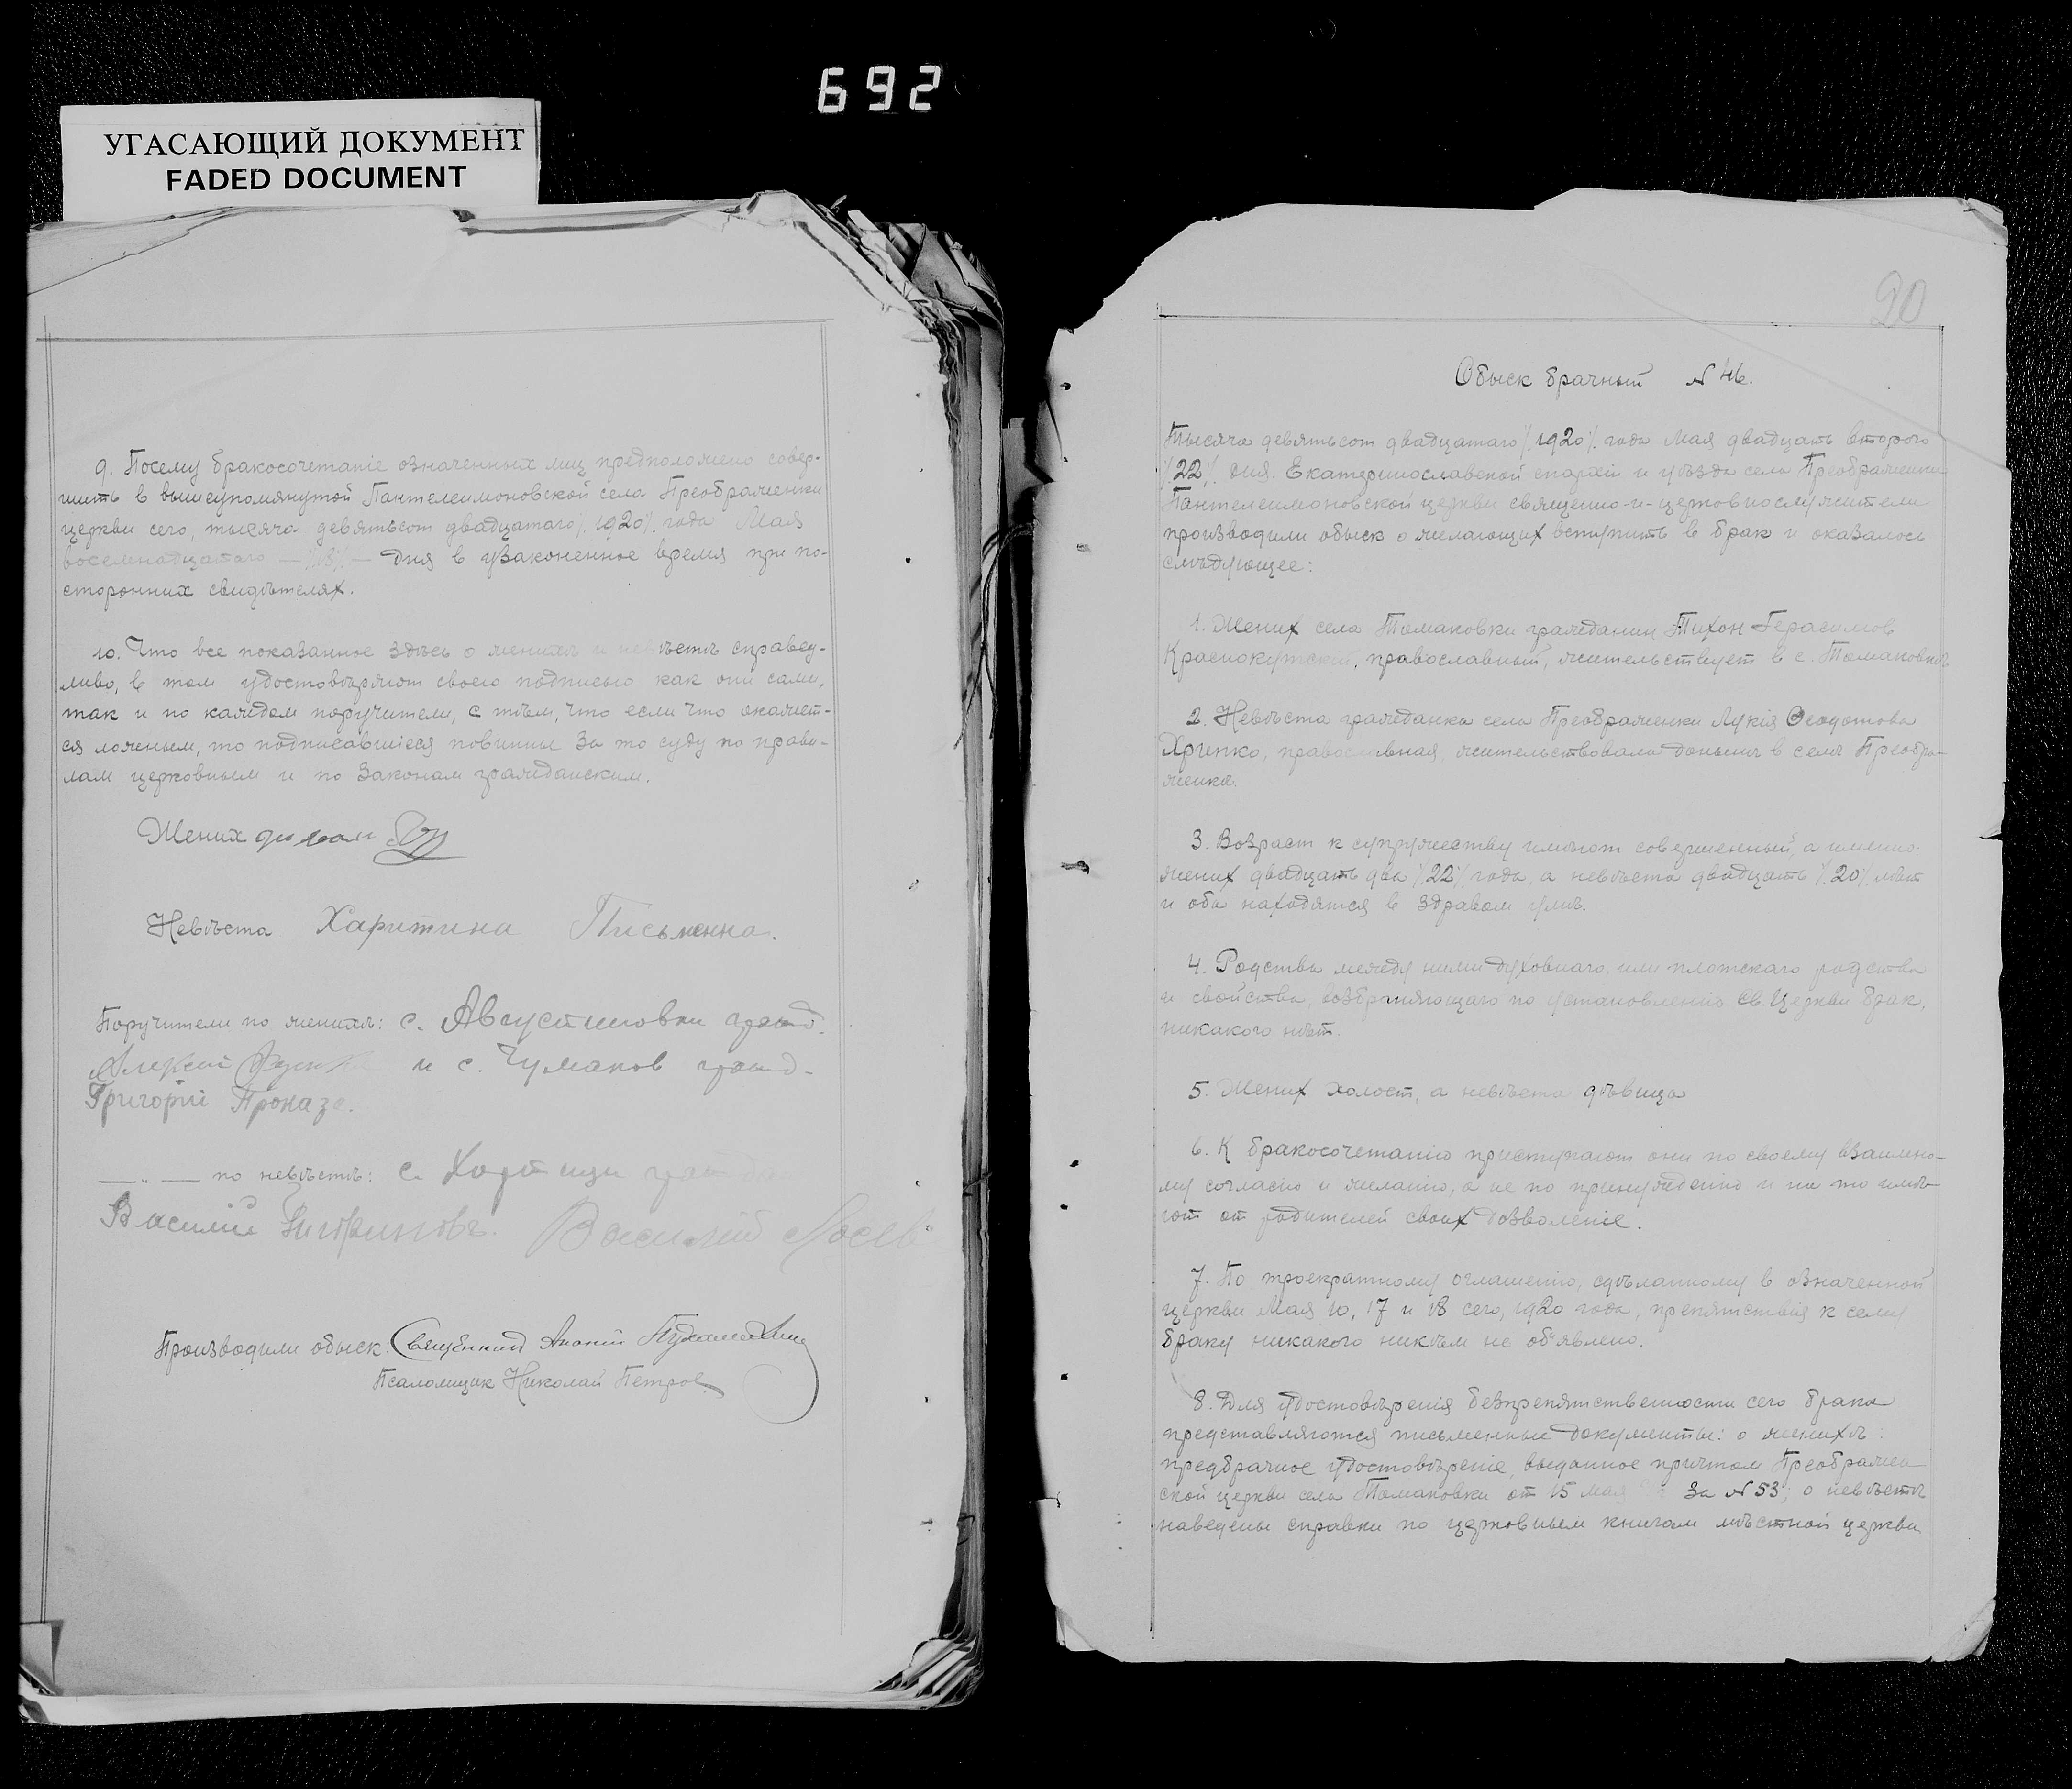 692
УГАСАЮЩИЙ ДОКУМЕНТ
FADED DOCUMENT
9. Посему бракосочетаніе означенных лиц предположено совер-
шить в вышеупомянутой Пантелеимоновской села Преображенки
церкви сего, тысяча девятьсот двадцатаго /.1920/. года Мая
восемнадцатаго — /.18/. — дня в узаконенное время при по-
сторонних свидѣтелях.
10. Что все показанное здѣсь о женихѣ и невѣстѣ справед-
ливо, в том удостовѣряют своею подписью как они сами,
так и по каждом поручители, с тѣм, что если что окажет-
ся ложным, то подписавшіеся повинны за то суду по прави-
лам церковным и по законам гражданским.
Жених
Невѣста Харитина Письменна.
Поручители по женихѣ: с. Августиновки гражд.
Алексей и с. Чумаков гражд.
Григорій Проказа.
— „ — по невѣстѣ: с. Хортицы
Василій Василій
Производили обыск: Священник
Псаломщик Николай Петров
20
Обыск брачный № 46.
Тысяча девятьсот двадцатаго /.1920/. года Мая двадцать второго
/.22/. дня. Екатеринославской епархіи и уѣзда села Преображенки
Пантелеимоновской церкви священно-и-церковнослужители
производили обыск о желающих вступить в брак и оказалось
слѣдующее:
1. Жених села Томаковки гражданин Тихон Герасимов
Краснокутский, православный, жительствует в с. Томаковкѣ
2. Невѣста гражданка села Преображенки Лукія Ѳеодотова
Харченко, православная, жительствовала донынѣ в селѣ Преобра-
женка.
3. Возраст к супружеству имѣют совершенный, а именно:
жених двадцать два /.22/. года, а невѣста двадцать /.20/. лѣт
и оба находятся в здравом умѣ.
4. Родства между ними духовнаго, или плотскаго родства
и свойства, возбраняющаго по установленію Св. Церкви брак,
никакого нѣт.
5. Жених холост, а невѣста дѣвица
6. К бракосочетанію приступают они по своему взаимно-
му согласію и желанію, а не по принужденію и на то имѣ-
ют от родителей своих дозволеніе.
7. По троекратному оглашенію, сдѣланному в означенной
церкви Мая 10, 17 и 18 сего, 1920 года, препятствія к сему
браку никакого никѣм не об'явлено.
8. Для удостовѣренія безпрепятственности сего брака
представляются письменные документы: о женихѣ:
предбрачное удостовѣреніе, выданное причтом Преображен-
ской церкви села Томаковки от 15 мая за № 53; о невѣстѣ
наведены справки по церковным книгам мѣстной церкви